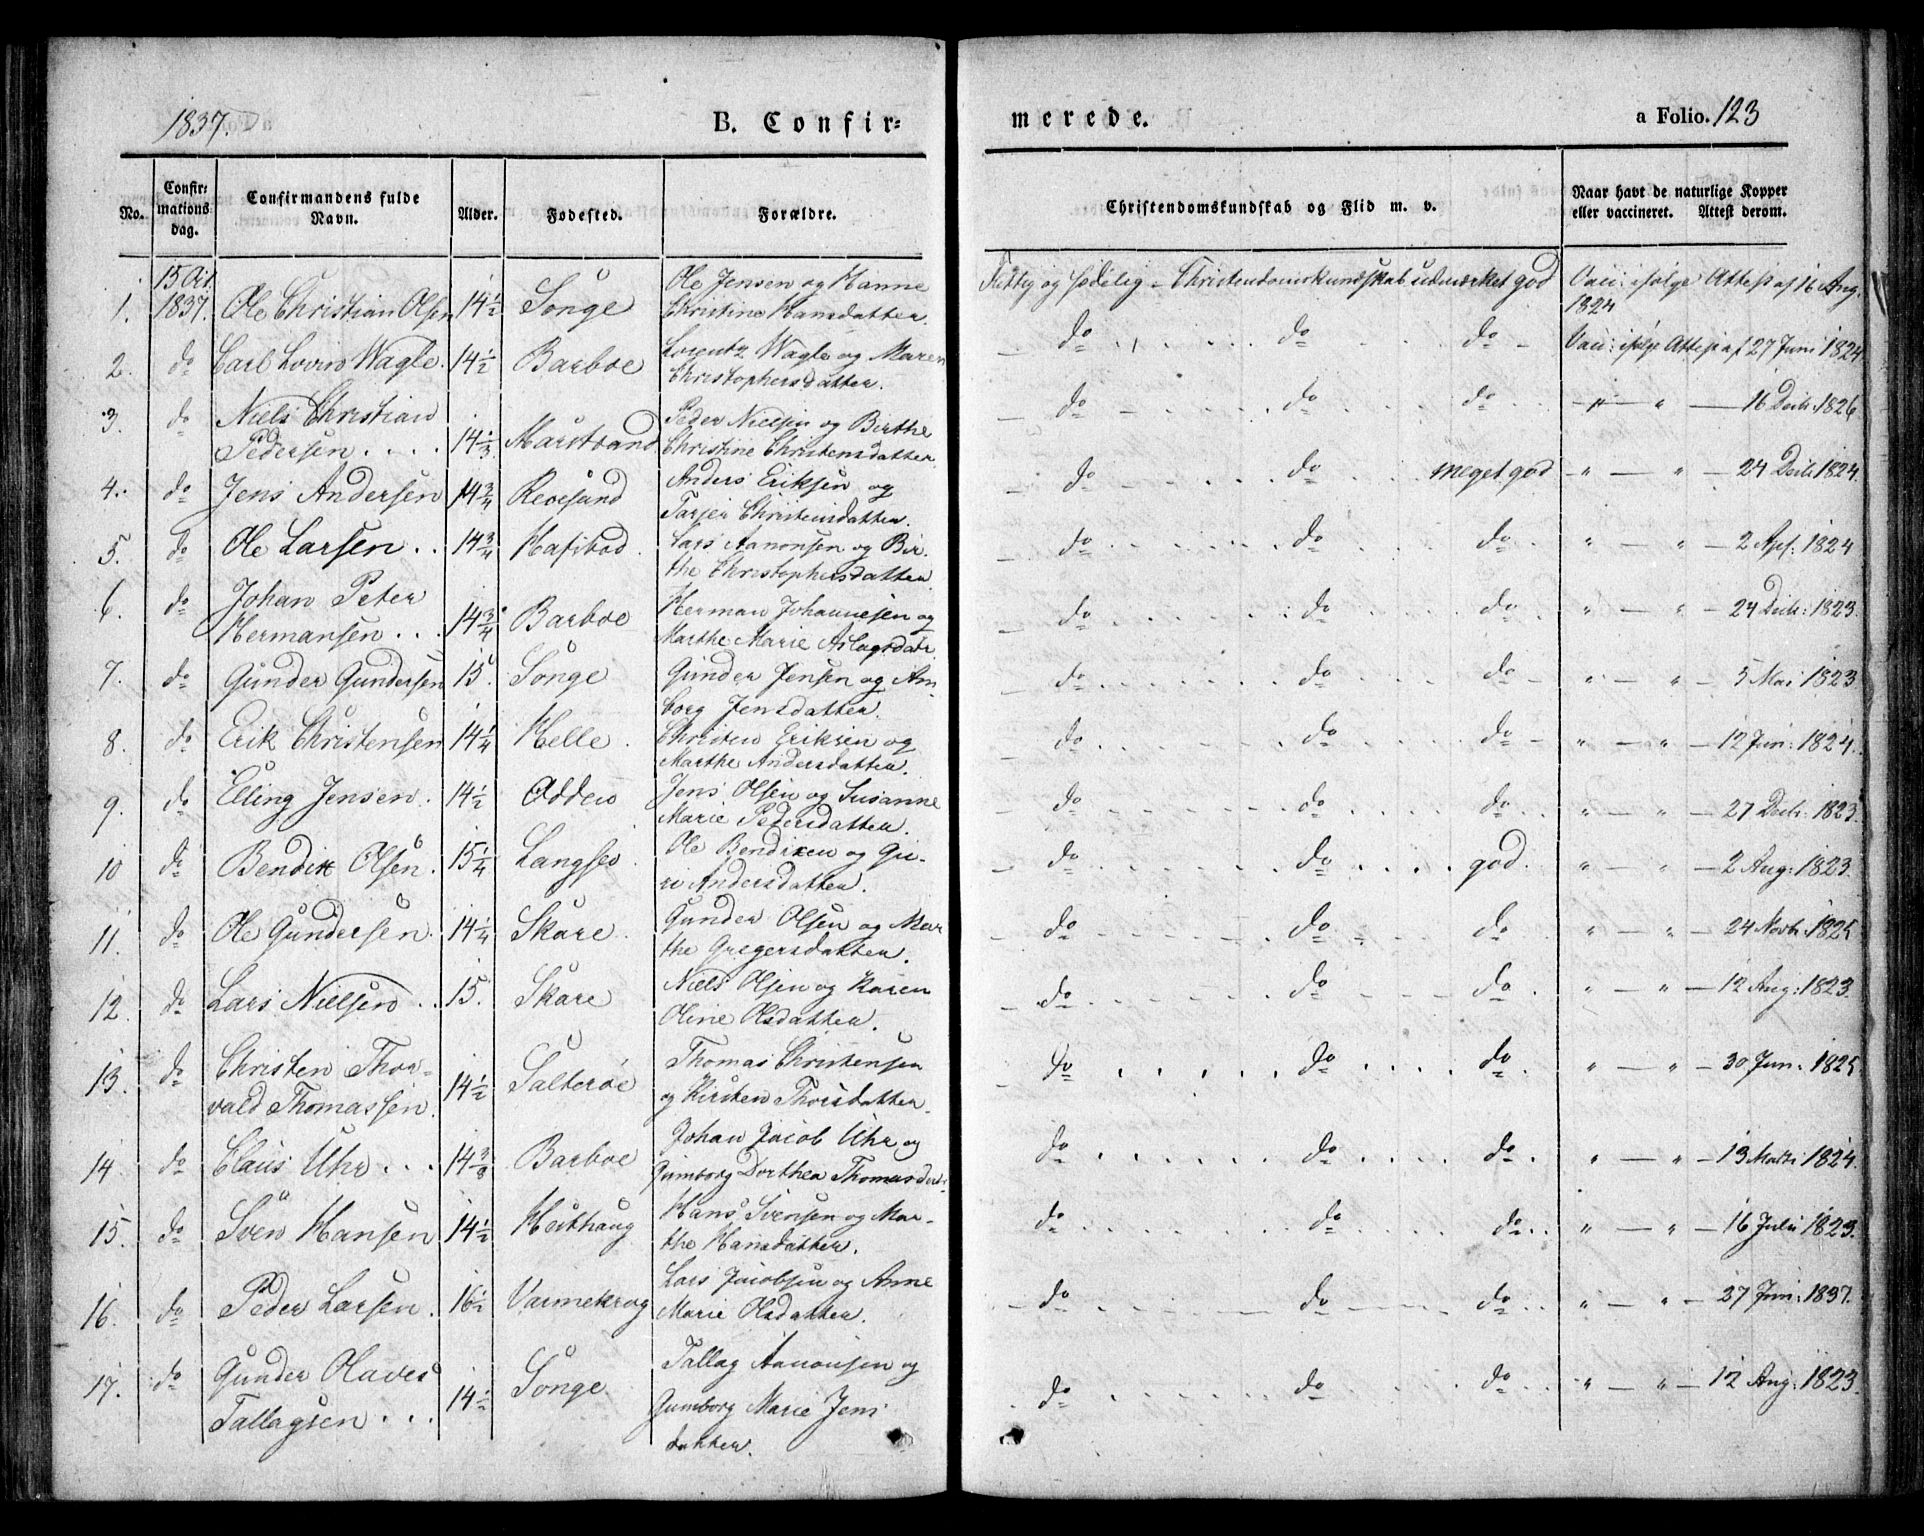 1837.
B. Confir=
merede.
a Folio. 123
No.
Confir=
mations
dag.
Confirmandens fulde
Navn.
Alder.
Fødested.
Forældre.
Christendomskundskab og Flid m. v.
Naar havt de naturlige Kopper
eller vaccineret. Attest derom.
1. 15 Oct. 1837. Ole Christian Olsen 14½ Songe Ole Jensen og Hanne
Christine Hansdatter. Flittig og sædelig - Christendomskundskab udmærket god Vacc: ifølge Attest af 16 Aug.
1824
2. do Carl Lovin Wagle. 14½ Barboe Lorentz Wagle og Maren
Christophersdatter. do do do Vacc: ifølge Attest af 27 Juni 1824.
3. do Niels Christian
Pedersen 14⅓ Marstrand Peder Nielsen og Berthe
Christine Christensdatter. do do do " — " — 16 Decbr: 1826
4. do Jens Andersen 14¾ Revesund Anders Eriksen og
Tarjer Christensdatter. do do meget god " — " — 24 Decbr 1824.
5. do Ole Larsen 14¾ Lars Aanonsen og Bir-
the Christophersdatter do do do " — " — 2 Apr: 1824
6. do Johan Peter
Hermansen 14¾ Barboe Herman Johannesen og
Marthe Marie Aslagsdatr. do do do " — " — 24 Decbr: 1823.
7. do Gunder Gundersen 15. Songe Gunder Jensen og An-
borg Jensdatter. do do do " — " — 5 Mai 1823
8. do Erik Christensen 14¼ Helle Christen Eriksen og
Marthe Andersdatter. do do do " — " — 12 Jun: 1824.
9. do Elling Jensen. 14½ Odden Jens Olsen og Susanne
Marie Pedersdatter. do do do " — " — 27 Decbr: 1823.
10 do Bendix Olsen. 15¼ Langsee Ole Bendixen og Gu-
ri Andersdatter. do do god. " — " — 2 Aug: 1823.
11. do Ole Gundersen. 14¼ Skare Gunder Olsen og Mar
the Gregersdatter. do do do " — " — 24 Novbr: 1825
12. do Lars Nielsen 15. Skare Niels Olsen og Karen
Oline Olsdatter. do do do " — " — 12 Aug: 1823.
13. do Christen Thor-
vald Thomassen. 14½ Salterøe Thomas Christensen
og Kirsten Thorsdatter. do do do " — " — 30 Jun: 1825
14. do Claus Uhr 14⅜ Barboe Johan Jacob Uhr og
Gumborg Dorthea Thomasdatr. do do do " — " — 13 Marts 1824.
15. do Sven Hansen 14½ Heithaug Hans Svensen og Mar-
the Hansdatter. do do do " — " — 16 Julii 1823.
16. do Peder Larsen. 16½ Varmekrog Lars Jacobsen og Anne
Marie Olsdatter. do do do " — " — 27 Juni: 1837.
17. do Gunder Olaves
Tallagsen 14½ Songe Tallag Aanonsen og
Gumborg Marie Jens
datter. do do do " — " — 12 Aug: 1823.